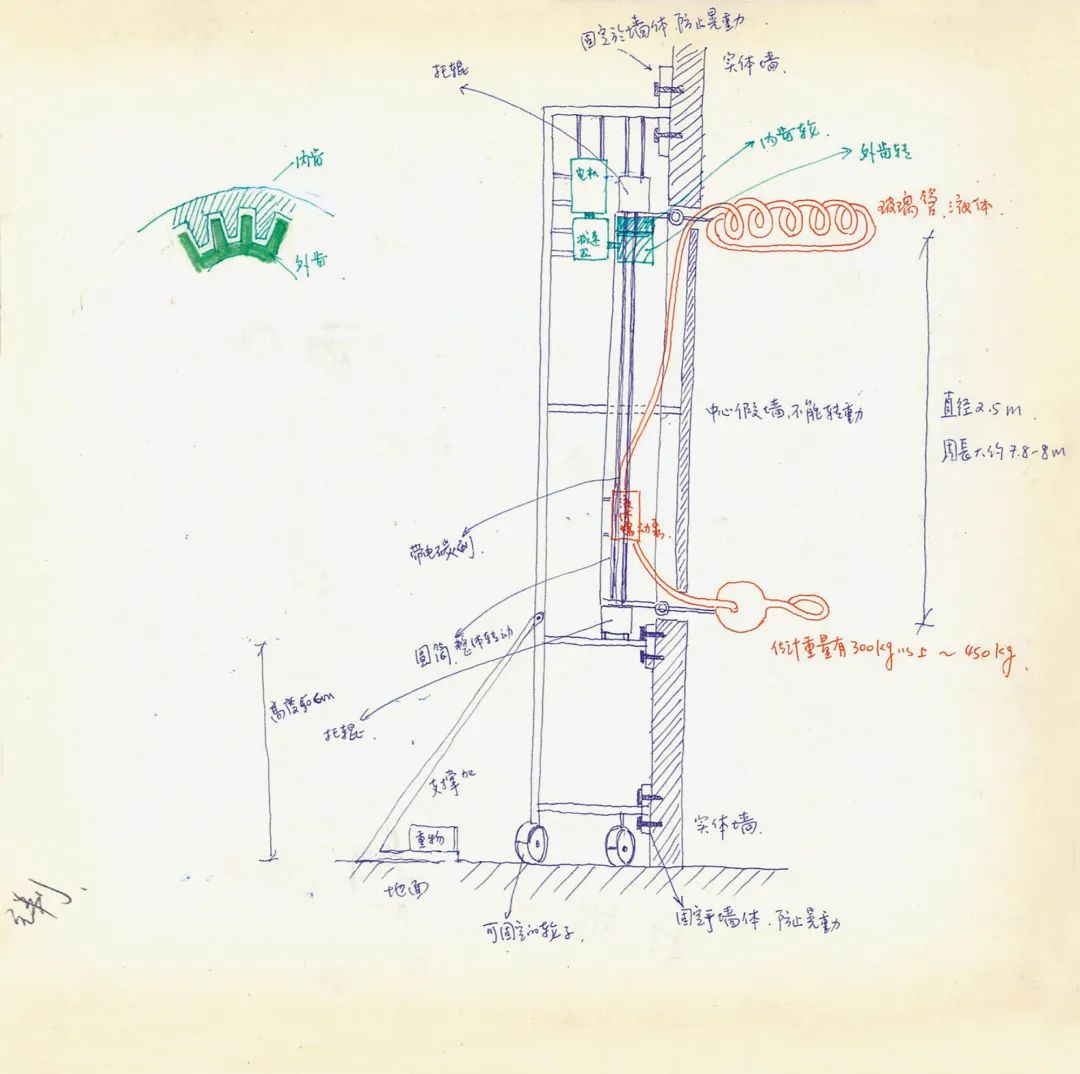 固定於墙体.防止晃動
实体墙.
托辊
内齿轮.
外齿转
内齿
外齿
电机
减速
玻璃管.液体.
中心假墙.不能转動
直径2.5m
周長大约7.8-8m
带电碳刷.
动泵.
圆筒.整体转动
估计重量有300kg以上~450kg.
高度50cm
托辊.
支撑加
重物
实体墙.
地面
可固定的轮子.
固定于墙体.防止晃動